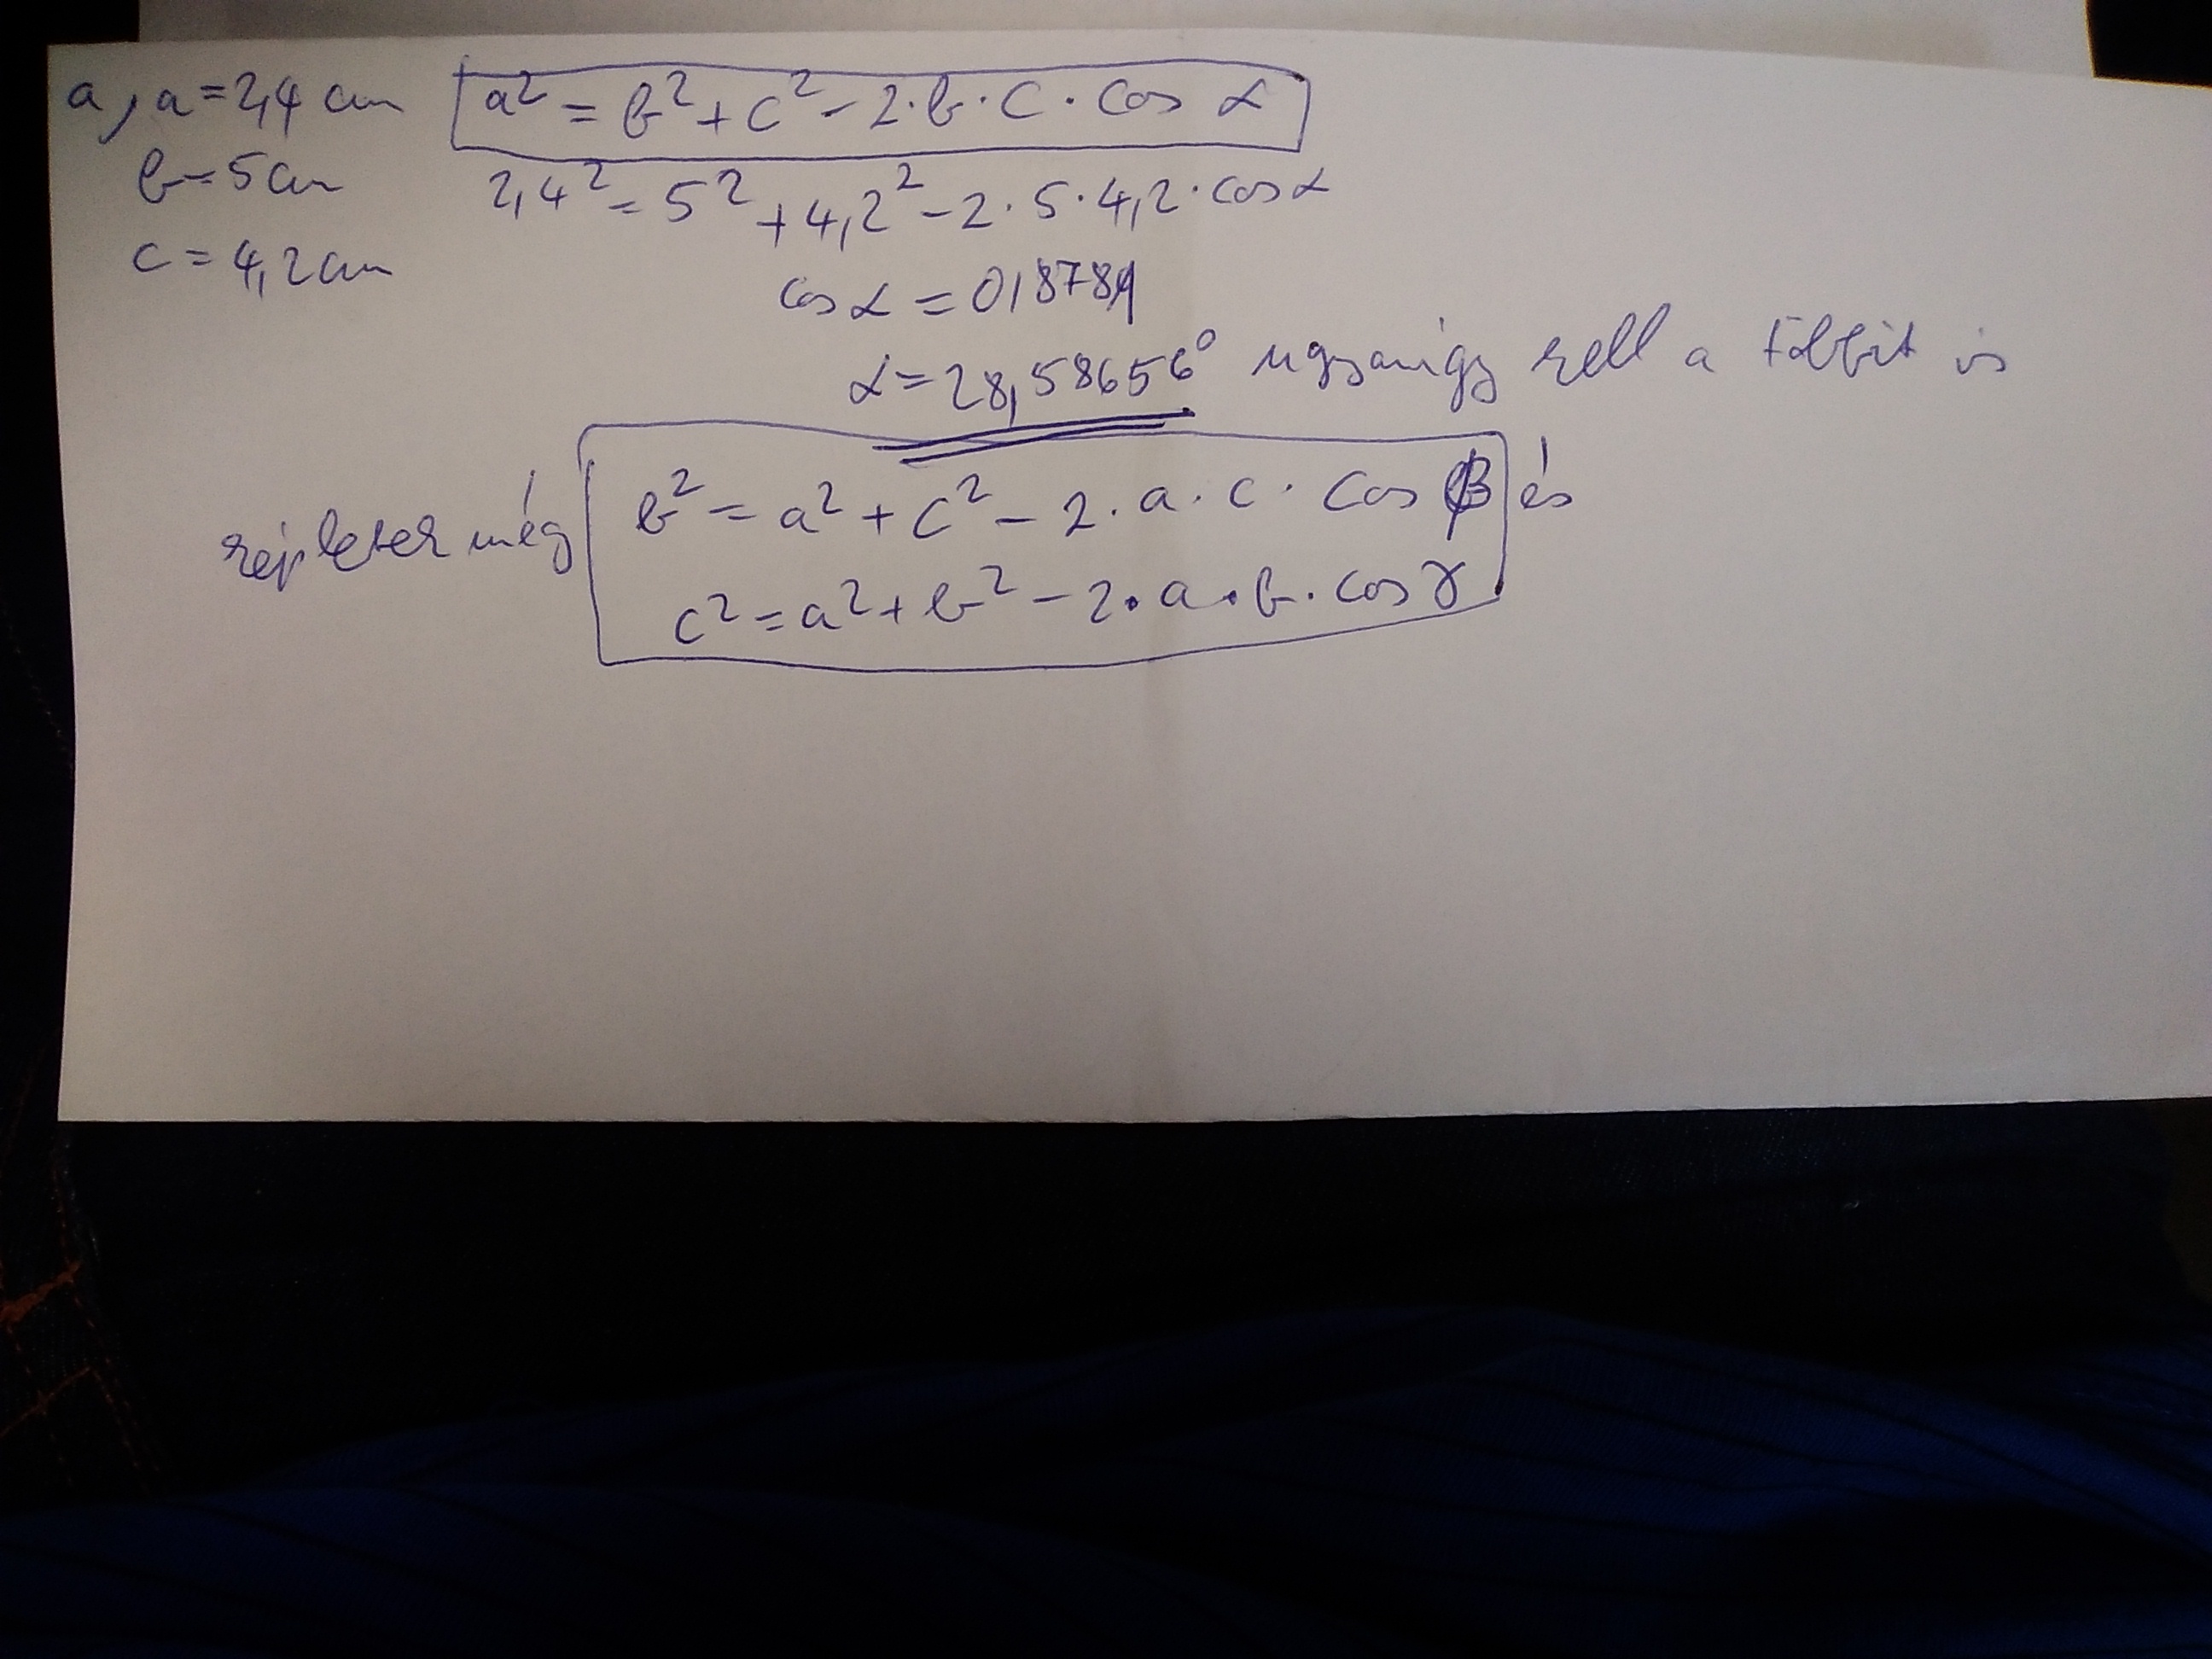 a, a = 2,4 cm a² = b² + c² - 2·b·c·cos α
b = 5 cm 2,4² = 5² + 4,2² - 2·5·4,2·cos α
c = 4,2 cm
cos α = 0,8781
α = 28,58656° ugyanígy kell a többit is
képletek még b² = a² + c² - 2·a·c·cos β és
c² = a² + b² - 2·a·b·cos γ